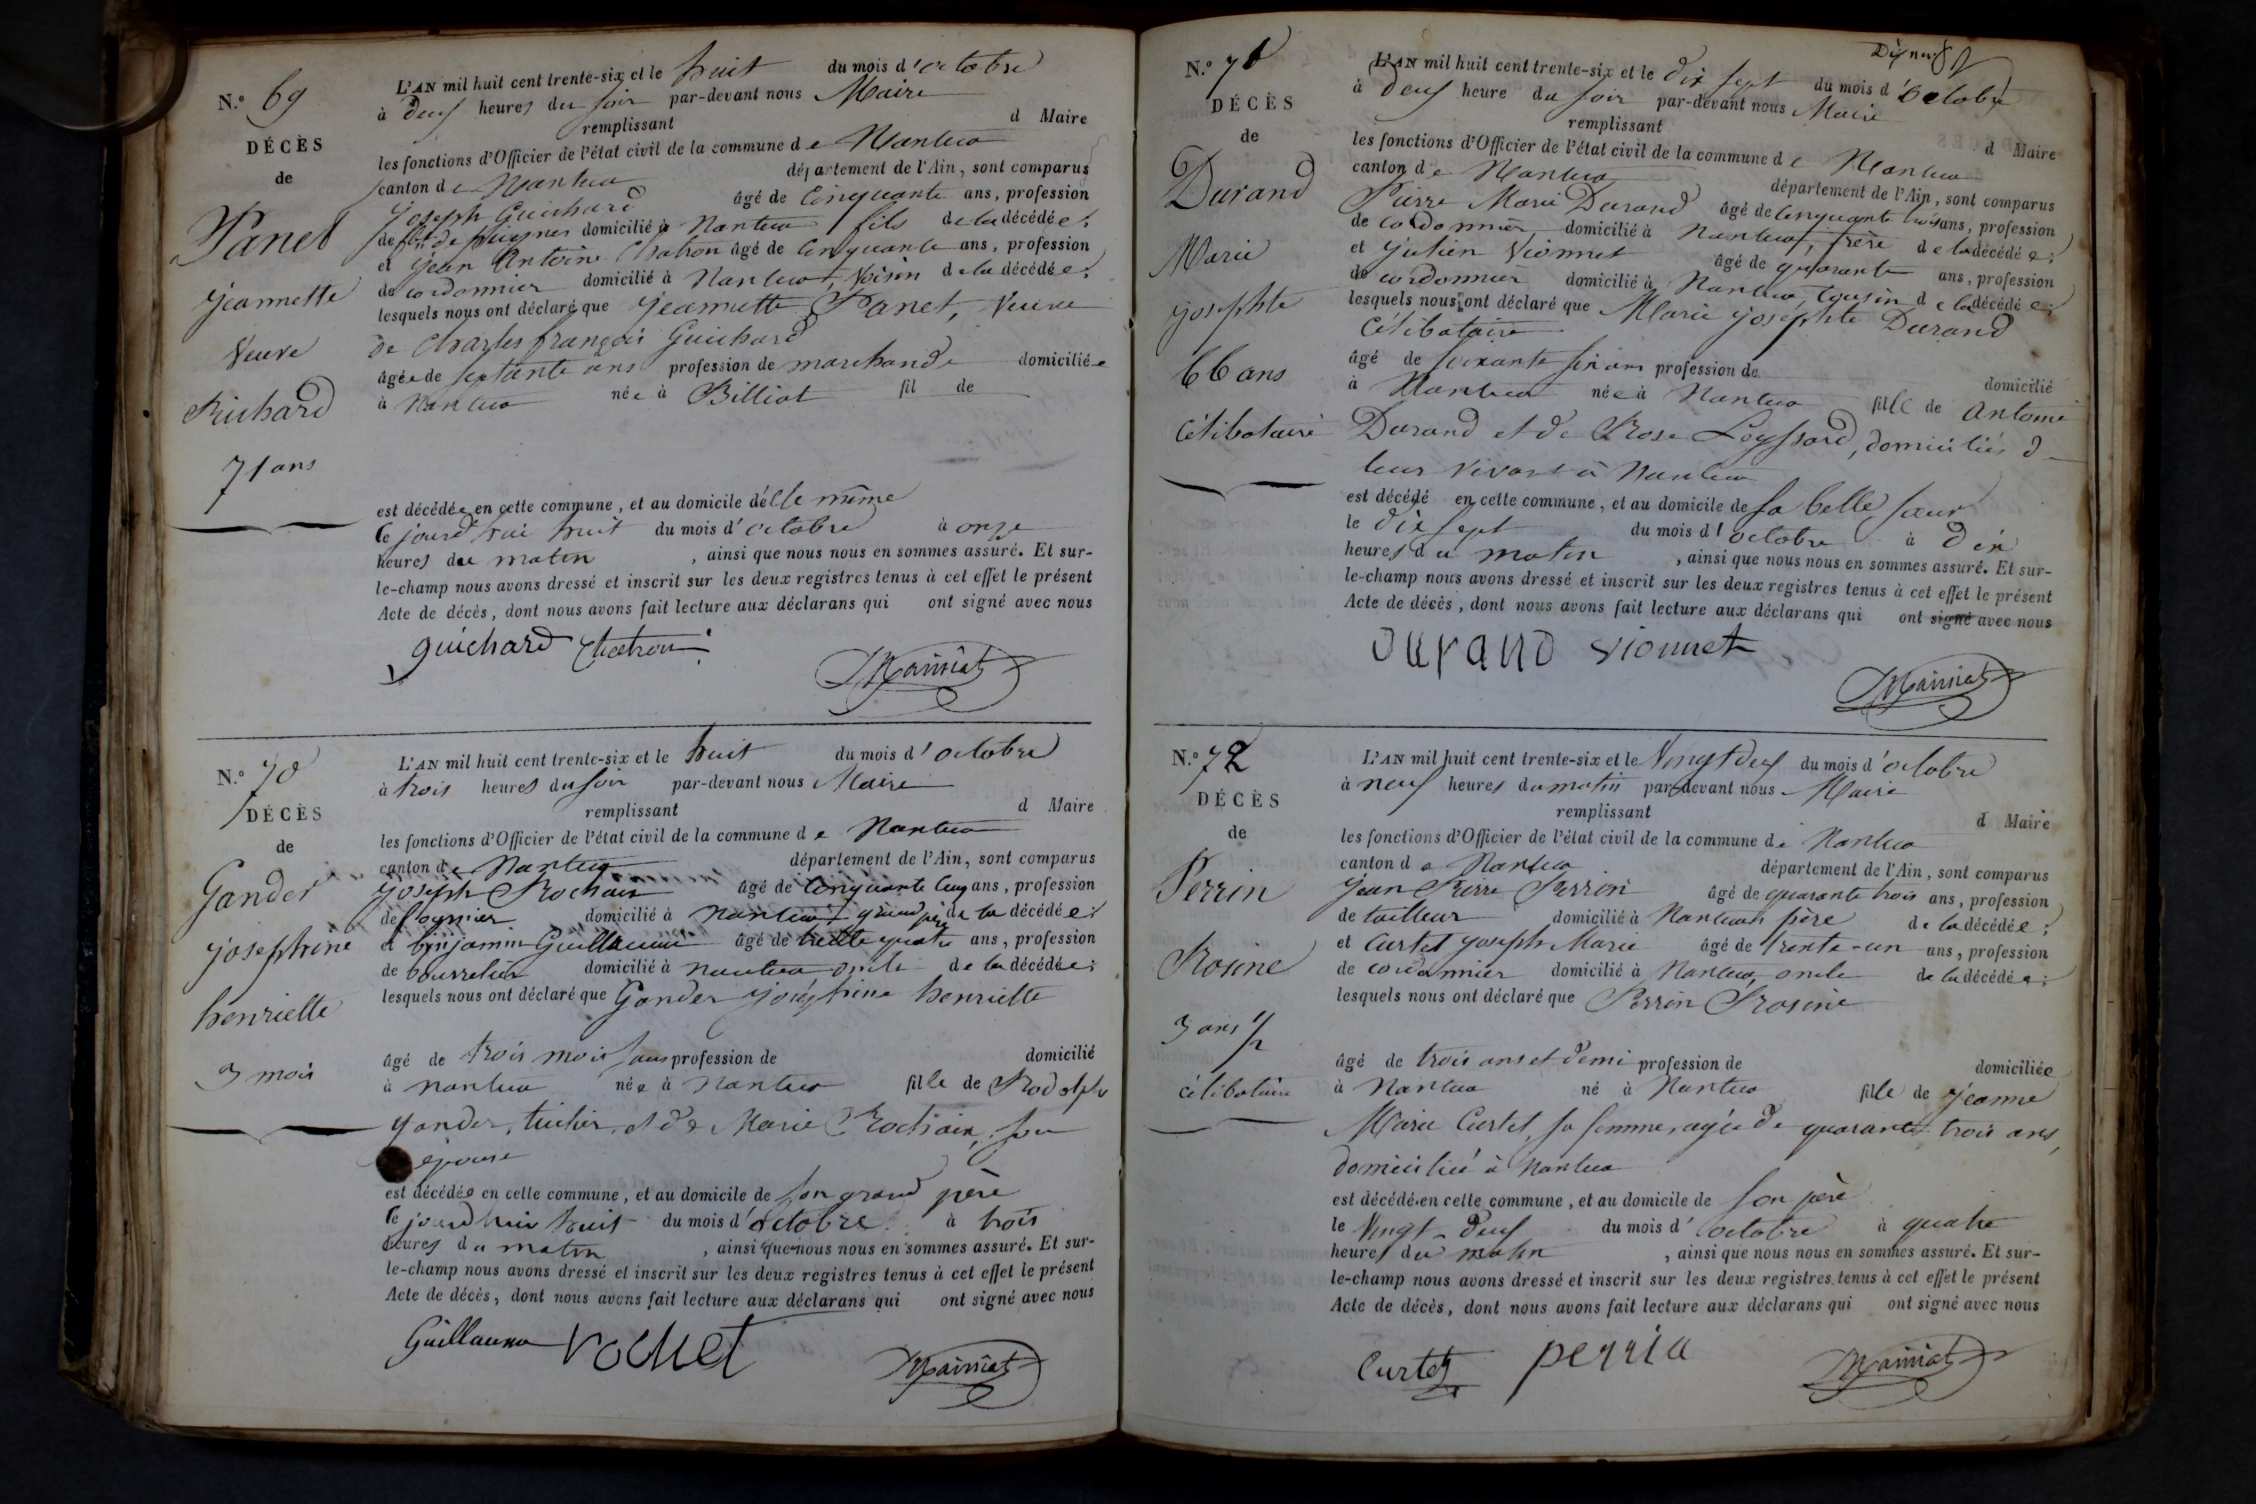 N.° 69
DÉCÈS
de
Panet
Jeannette
Veuve
Guichard
71 ans
L'AN mil huit cent trente-six et le huit du mois d'octobre
à deux heures du soir par-devant nous Maire
remplissant d Maire
les fonctions d'Officier de l'état civil de la commune de Nantua
canton de Nantua département de l'Ain, sont comparus
Joseph Guichard âgé de Cinquante ans, profession
de fbt de peignes domicilié à Nantua fils de la décédée;
et Jean Antoine Chatron âgé de Cinquante ans, profession
de cordonnier domicilié à Nantua, Voisin de la décédée;
lesquels nous ont déclaré que Jeannette Panet, Veuve
de Charles françois Guichard
âgée de septante ans profession de marchande domiciliée
à Nantua née à Billiat fil de
est décédée en cette commune, et au domicile d'elle même
Ce jourd'hui huit du mois d'octobre à onze
heures du matin, ainsi que nous nous en sommes assuré. Et sur-
le-champ nous avons dressé et inscrit sur les deux registres tenus à cet effet le présent
Acte de décès, dont nous avons fait lecture aux déclarans qui ont signé avec nous
guichard Chatron
Mainiat
N.° 70
DÉCÈS
de
Gander
Josephine
henriette
3 mois
L'AN mil huit cent trente-six et le huit du mois d'octobre
à trois heures du soir par-devant nous Maire
remplissant d Maire
les fonctions d'Officier de l'état civil de la commune de Nantua
canton de Nantua département de l'Ain, sont comparus
Joseph Rochaix âgé de Cinquante Cinq ans, profession
de domicilié à Nantua grand père de la décédée;
et benjamin Guillaume âgé de trente quatre ans, profession
de bourrelier domicilié à Nantua oncle de la décédée;
lesquels nous ont déclaré que Gander Joséphine henriette
âgé de trois mois sans profession de domicilié
à Nantua née à Nantua fille de Rodolphe
Gander, tuilier, et de Marie Rochaix, son
épouse
est décédée en cette commune, et au domicile de son grand père
Ce jourd'hui huit du mois d'octobre à trois
heures du matin, ainsi que nous nous en sommes assuré. Et sur-
le-champ nous avons dressé et inscrit sur les deux registres tenus à cet effet le présent
Acte de décès, dont nous avons fait lecture aux déclarans qui ont signé avec nous
Guillaume rochet
Mainiat
N.° 71
DÉCÈS
de
Durand
Marie
josephte
66 ans
Célibataire
Dixneuf
L'AN mil huit cent trente-six et le dix sept du mois d'Octobre
à deux heure du soir par-devant nous Maire
remplissant d Maire
les fonctions d'Officier de l'état civil de la commune de Nantua
canton de Nantua département de l'Ain, sont comparus
Pierre Marie Durand âgé de Cinquante trois ans, profession
de cordonnier, domicilié à Nantua, frère de la décédée;
et Julien Vionnet âgé de quarante ans, profession
de cordonnier domicilié à Nantua, cousin de la décédée;
lesquels nous ont déclaré que Marie josephte Durand
Célibataire
âgé de soixante six ans profession de domicilié
à Nantua née à Nantua fille de Antoine
Durand et de Rose Loyssard, domiciliés d
leur vivant à Nantua
est décédé en cette commune, et au domicile de sa belle sœur
le dix sept du mois d'octobre à dix
heures du matin, ainsi que nous nous en sommes assuré. Et sur-
le-champ nous avons dressé et inscrit sur les deux registres tenus à cet effet le présent
Acte de décès, dont nous avons fait lecture aux déclarans qui ont signé avec nous
Durand vionnet
Mainiat
N.° 72
DÉCÈS
de
Perrin
Rosine
3 ans 1/2
Célibataire
L'AN mil huit cent trente-six et le Vingt deux du mois d'octobre
à neuf heures du matin par-devant nous Maire
remplissant d Maire
les fonctions d'Officier de l'état civil de la commune de Nantua
canton de Nantua département de l'Ain, sont comparus
Jean Pierre Perrin âgé de quarante trois ans, profession
de tailleur domicilié à Nantua, père de la décédée;
et Curtet Joseph Marie âgé de trente-un ans, profession
de cordonnier domicilié à Nantua, oncle de la décédée;
lesquels nous ont déclaré que Perrin Rosine
âgé de trois ans et demi profession de domiciliée
à Nantua né à Nantua fille de Jeanne
Marie Curtet, sa femme, agée de quarante trois ans,
domiciliée à Nantua
est décédé en cette commune, et au domicile de son père
le Vingt-deux du mois d'octobre à quatre
heures du matin, ainsi que nous nous en sommes assuré. Et sur-
le-champ nous avons dressé et inscrit sur les deux registres tenus à cet effet le présent
Acte de décès, dont nous avons fait lecture aux déclarans qui ont signé avec nous
Curtet perrin
Mainiat